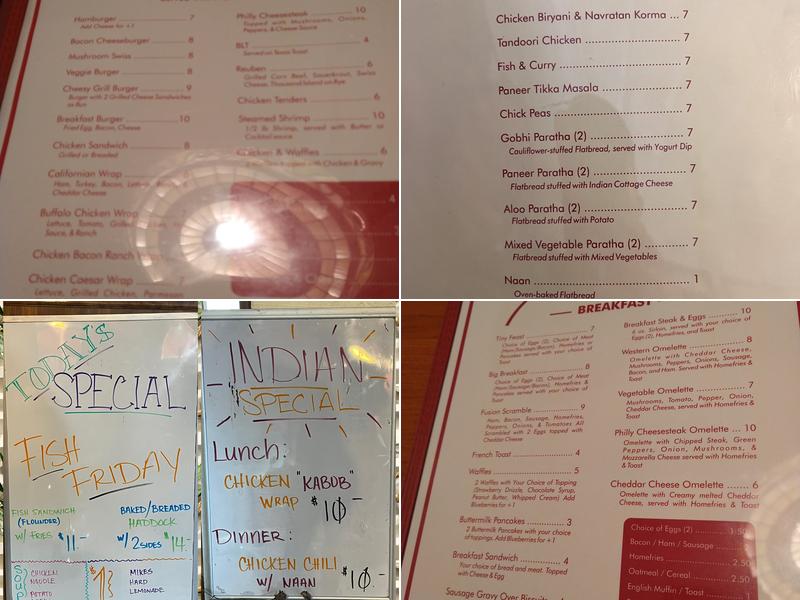 Hamburger 7
Add Cheese for +.1
Bacon Cheeseburger 8
Mushroom Swiss 8
Veggie Burger 8
Cheesy Grill Burger 9
Burger with 2 Grilled Cheese Sandwiches
as Bun
Breakfast Burger 10
Fried Egg, Bacon, Cheese
Chicken Sandwich 8
Grilled or Breaded
Californian Wrap
Ham, Turkey, Bacon,
Cheddar Cheese
Buffalo Chicken Wrap
Lettuce, Tomato, Grilled
Sauce, & Ranch
Chicken Bacon Ranch
Chicken Caesar Wrap 7
Lettuce, Grilled Chicken, Parmesan
Philly Cheesesteak 10
Topped with Mushrooms, Onions,
Peppers, & Cheese Sauce
BLT 4
Served on Texas Toast
Reuben 6
Grilled Corn Beef, Sauerkraut, Swiss
Cheese, Thousand Island on Rye
Chicken Tenders 6
Steamed Shrimp 10
1/2 lb Shrimp, served with Butter or
Cocktail sauce
Chicken & Waffles 6
topped with Chicken & Gravy
Chicken Biryani & Navratan Korma ... 7
Tandoori Chicken 7
Fish & Curry 7
Paneer Tikka Masala 7
Chick Peas 7
Gobhi Paratha (2) 7
Cauliflower-stuffed Flatbread, served with Yogurt Dip
Paneer Paratha (2) 7
Flatbread stuffed with Indian Cottage Cheese
Aloo Paratha (2) 7
Flatbread stuffed with Potato
Mixed Vegetable Paratha (2) 7
Flatbread stuffed with Mixed Vegetables
Naan 1
Oven-baked Flatbread
TODAY'S
SPECIAL
FISH
FRIDAY
FISH SANDWICH
(FLOUNDER)
W/ FRIES $11.-
BAKED/BREADED
HADDOCK
W/ 2 SIDES $14.-
SOUP
CHICKEN
NOODLE
POTATO
MIKES
HARD
LEMONADE
INDIAN
SPECIAL
Lunch:
CHICKEN "KABOB"
WRAP $10-
DINNER:
CHICKEN CHILI
W/ NAAN $10.-
BREAKFAST
Tiny Feast 7
Choice of Eggs (2), Choice of Meat
(Ham/Sausage/Bacon), Homefries or
Pancakes served with your choice of
Toast
Big Breakfast 8
Choice of Eggs (2), Choice of Meat
(Ham/Sausage/Bacon), Homefries &
Pancakes served with your choice of
Toast
Fusion Scramble 9
Ham, Bacon, Sausage, Homefries,
Peppers, Onions, & Tomatoes All
Scrambled with 2 Eggs topped with
Cheddar Cheese
French Toast 4
Waffles 5
2 Waffles with Your Choice of Topping
(Strawberry Drizzle, Chocolate Syrup,
Peanut Butter, Whipped Cream) Add
Blueberries for +1
Buttermilk Pancakes 3
2 Buttermilk Pancakes with your choice
of toppings. Add Blueberries for +1
Breakfast Sandwich 4
Your choice of bread and meat. Topped
with Cheese & Egg
Sausage Gravy Over Biscuits
Breakfast Steak & Eggs 10
6 oz. Sirloin, served with your choice of
Eggs (2), Homefries, and Toast
Western Omelette 8
Omelette with Cheddar Cheese,
Mushrooms, Peppers, Onions, Sausage,
Bacon, and Ham. Served with Homefries &
Toast
Vegetable Omelette 7
Mushrooms, Tomato, Pepper, Onion,
Cheddar Cheese, served with Homefries &
Toast
Philly Cheesesteak Omelette ... 10
Omelette with Chipped Steak, Green
Peppers, Onion, Mushrooms, &
Mozzarella Cheese served with Homefries
& Toast
Cheddar Cheese Omelette 6
Omelette with Creamy melted Cheddar
Cheese, served with Homefries & Toast
Choice of Eggs (2) 1.50
Bacon / Ham / Sausage
Homefries 2.50
Oatmeal / Cereal 2.50
English Muffin / Toast